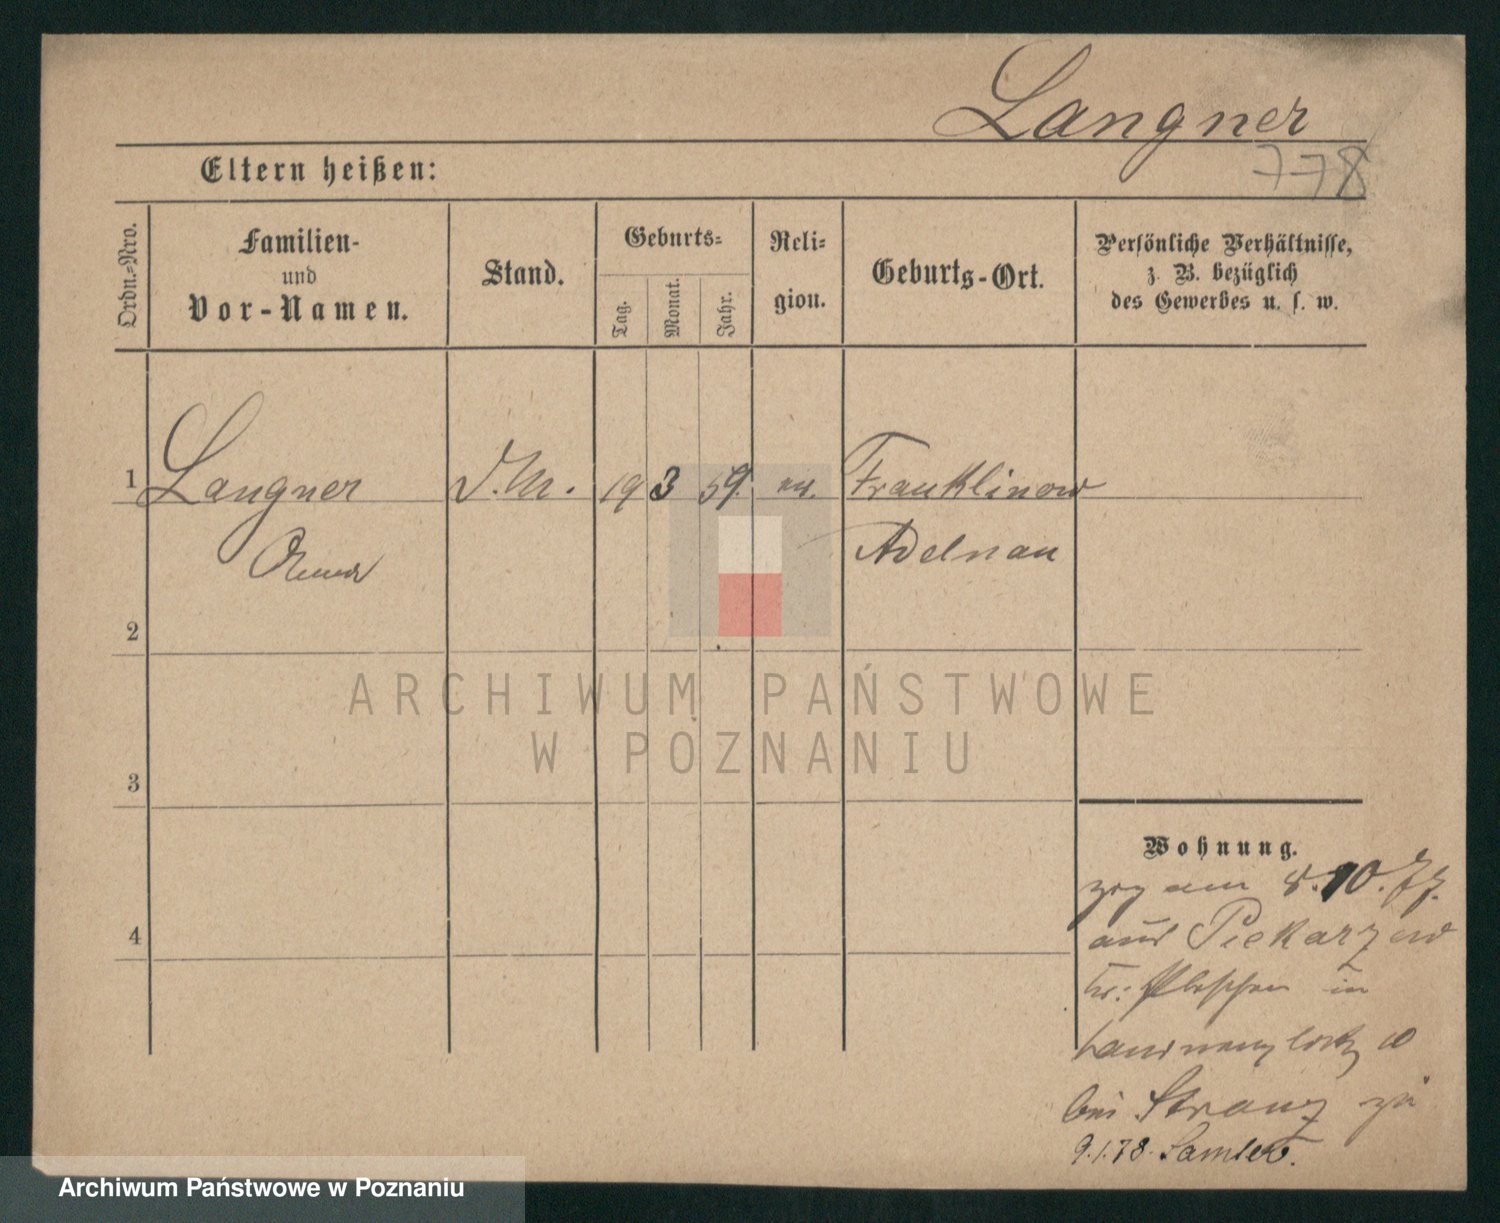 Langner
778
Eltern heißen:
Ordn.-Nro.
Familien-
und
Vor-Namen.
Stand.
Geburts-
Tag.
Monat.
Jahr.
Reli-
gion.
Geburts-Ort.
Persönliche Verhältnisse,
z. B. bezüglich
des Gewerbes u. s. w.
1 Langner D.M. 19 3 59. ev. Franklinow
Adelnau
2
3
4
Wohnung.
zog am 8.10.77.
aus Piekarzew
Kr: Pleschen in
bei Stranz zu
9.1.78. Samter.
ARCHIWUM PAŃSTWOWE
W POZNANIU
Archiwum Państwowe w Poznaniu